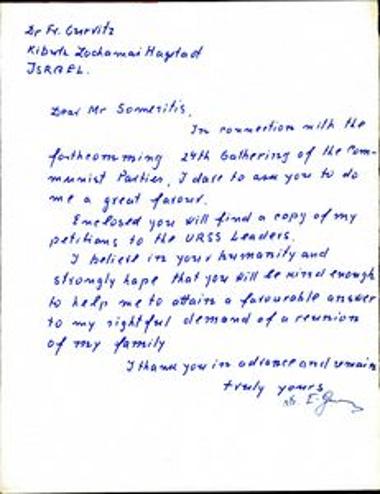 Dr Fr. Gurvitz
Kibutz Lochamai Hagetad
ISRAEL.
Dear Mr Someritis,
In connection with the
forthcomming 24th Gathering of the Com-
munist Parties, I dare to ask you to do
me a great favour.
Enclosed you will find a copy of my
petitions to the URSS Leaders.
I believe in your humanity and
strongly hope that you will be kind enough
to help me to attain a favourable answer
to my rightful demand of a reunion
of my family
I thank you in advance and remain
truly yours
Dr. E.